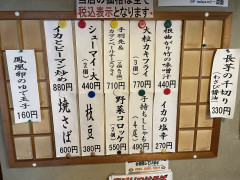 当店の価格は全て
税込表示となります。
長芋の千切り
(わさび醤油)
330円
440円
大粒カキフライ
770円
710円
シューマイ・大
440円
イカとピーマン炒め
880円
イカの塩辛
270円
子持ちししゃも
490円
野菜コロッケ
570円
枝豆
380円
焼さば
600円
鳳凰卵のゆで玉子
160円